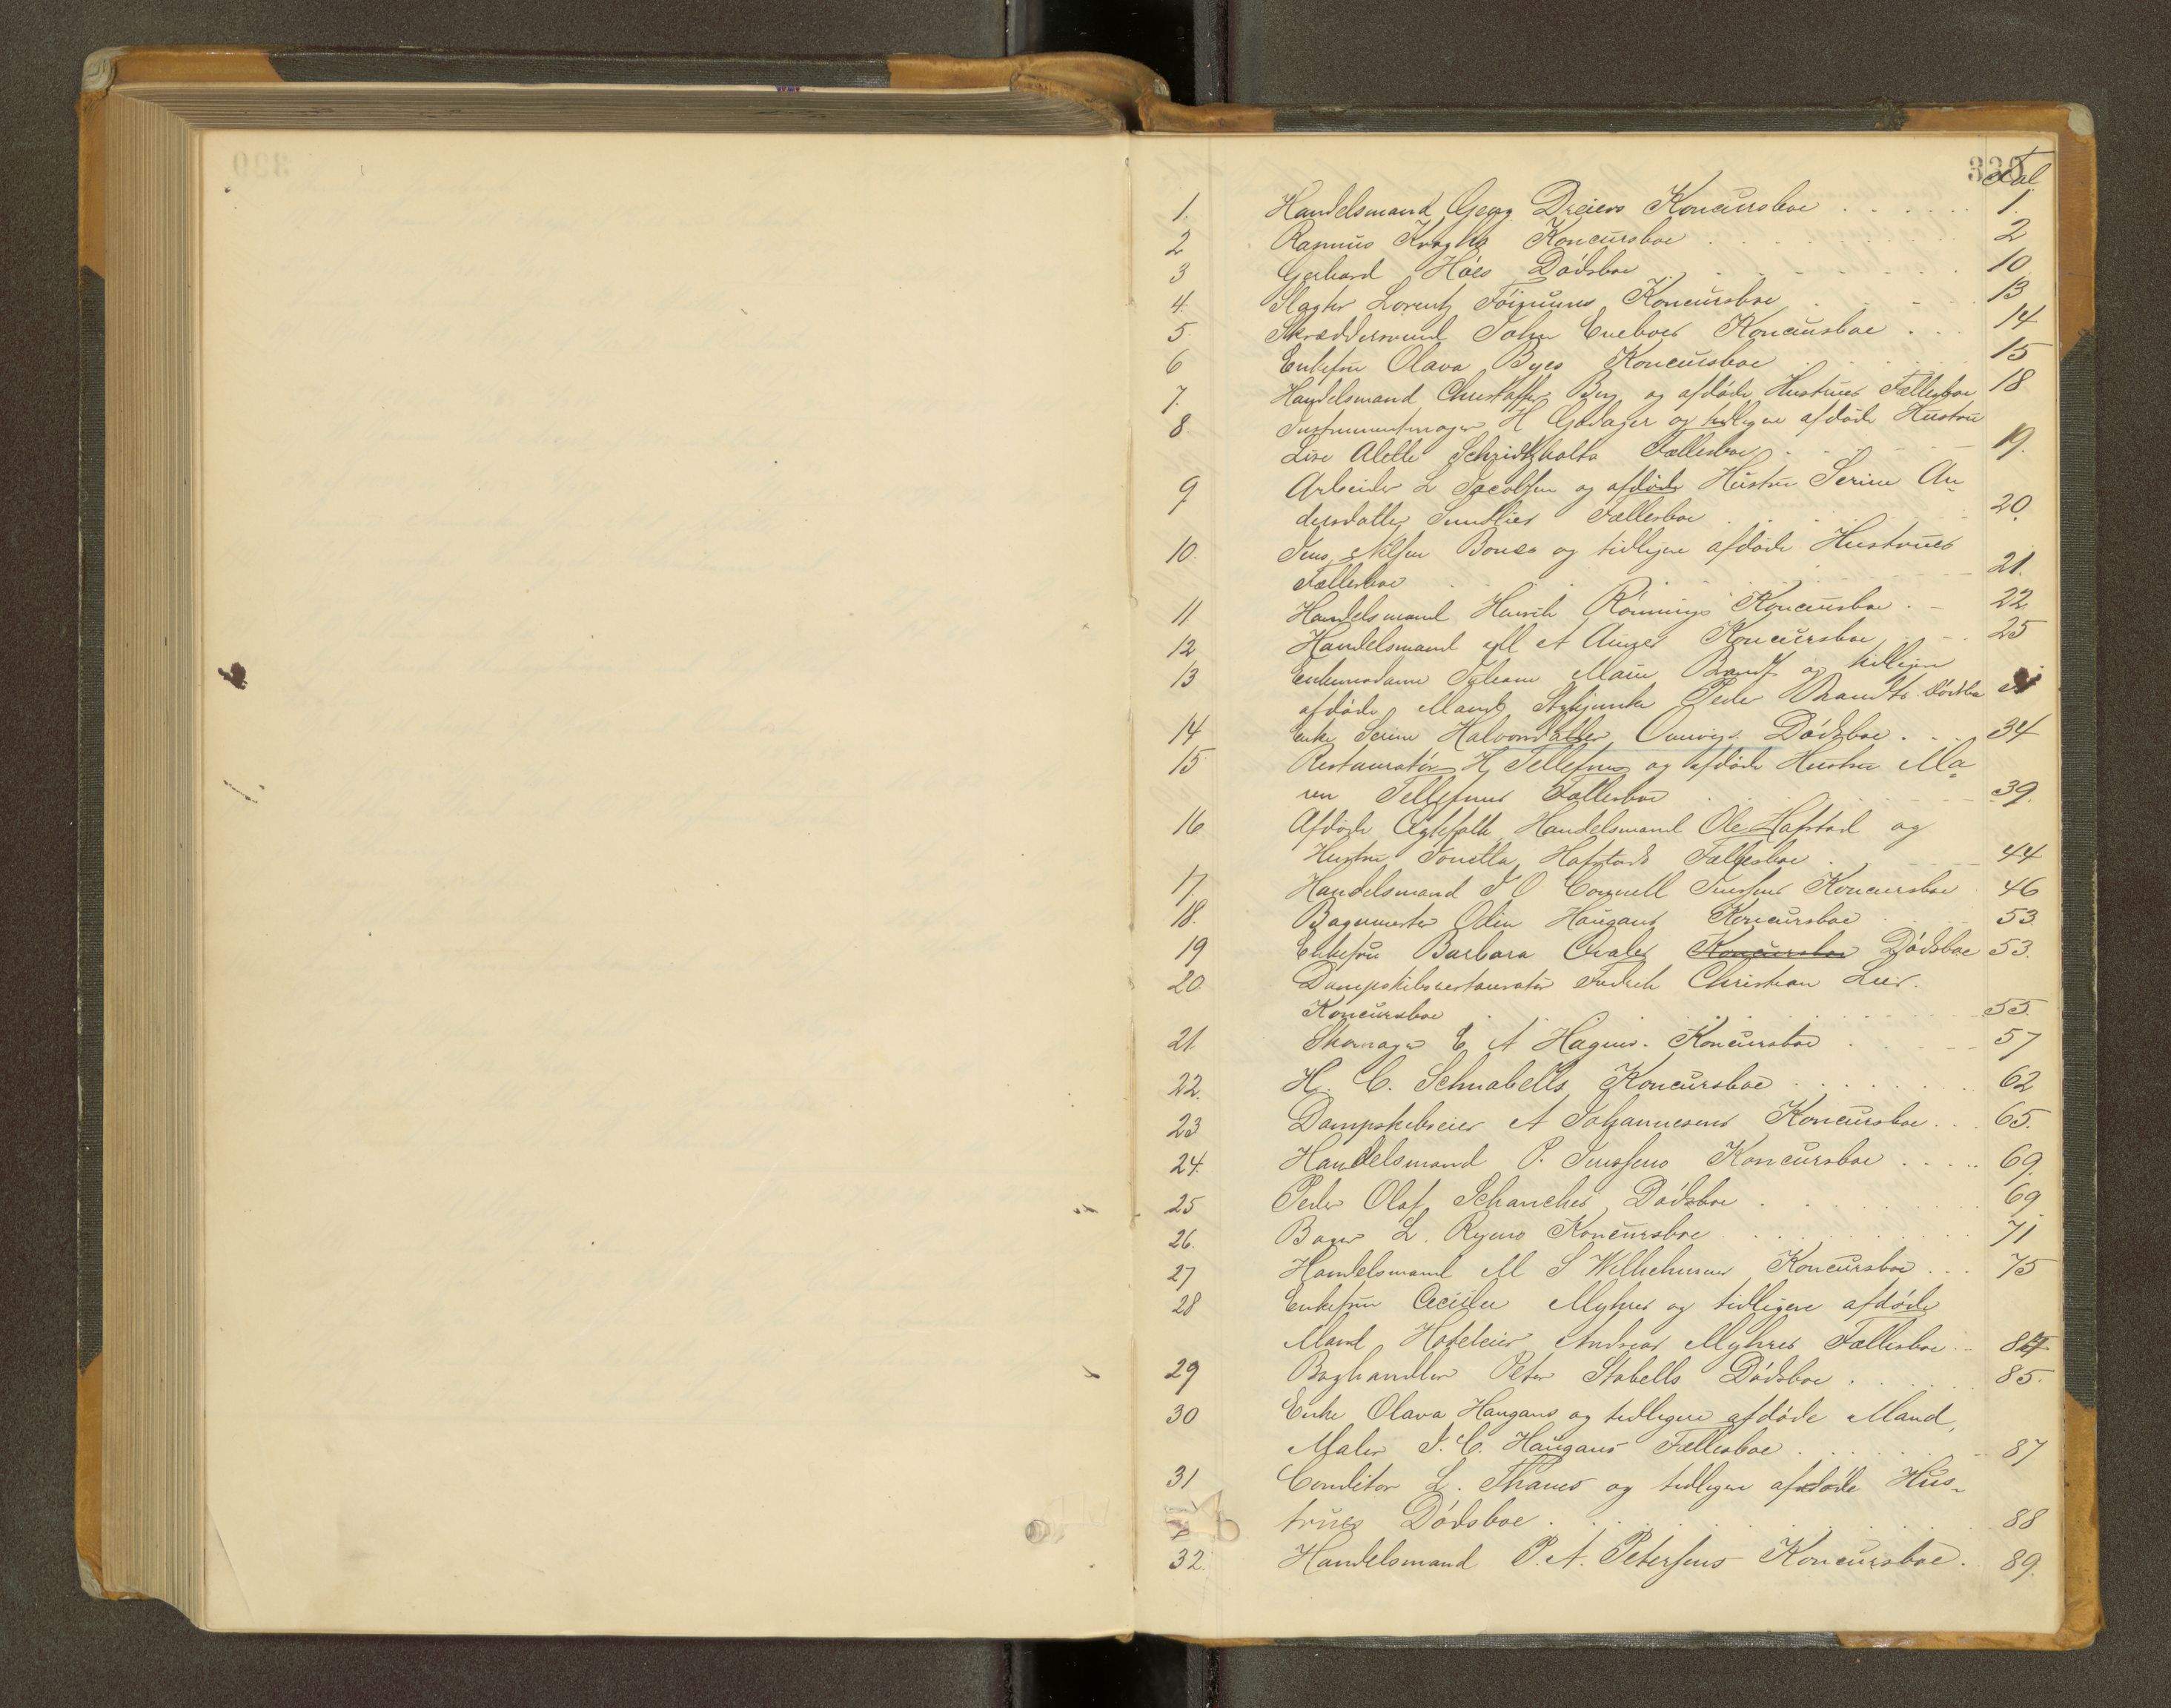 330
Fol
1. Handelsmand Georg Dreiers Koncursboe 1.
2 Rasmus Kroghs Koncursboe 2
3 Gerhard Høes Dødsboe 10
4. Slagter Lorentz Koncursboe 13
5. John Eneboes Koncursboe 14
6 Enkefru Olava Byes Koncursboe 15
7. Handelsmand Christoffer Berg og afdøde Hustrues Fællesboe 18
8. Instrumentmager H Godager og tidligere afdøde Hustru
Lise Alette Fællesboe 19.
9 Arbeider L Jacobsen og afdøde Hustru Serine An
dersdatter Fællesboe 20.
10. Jens Nilsen og tidligere afdøde Hustrues
Fællesboe 21.
11. Handelsmand Henrik Rønnings Koncursboe 22
12 Handelsmand M A Koncursboe 25
13 Enkemadame Maren Brandt og tidligere
afdøde Mand Peder Brandts Dødsboe
14 Enke Serine Halvorsdatter Dødsboe 34
15 Restauratør H Tellefsens og afdøde Hustru Ma
ren Tellefsens Fællesboe 39.
16 Afdøde Ægtefolk Handelsmand Ole Hafstad og
Hustru Hafstads Fællesboe 44
17. Handelsmand J O Cornell Jensens Koncursboe 46
18. Bagermester Odin Haugans Koncursboe 53.
19 Enkefru Barbara Koncursboe Dødsboe 53.
20 Dampskibsrestauratør Fredrik Christian
Koncursboe 55.
21. Skomager E. A Hagens Koncursboe 57
22. H. C. Schnabells Koncursboe 62
23 Dampskibseier A Johannesens Koncursboe 65.
24. Handelsmand P. Jenssens Koncursboe 69.
25 Peder Olaf Schanches Dødsboe 69
26. Bager L. Ryens Koncursboe 71
27 Handelsmand M S Wilhelmsens Koncursboe 75
28 Enkefru Cecilie Myhres og tidligere afdøde
Mand Hoteleier Andreas Myhres Fællesboe 84
29 Boghandler Peter Stabells Dødsboe 85.
30 Enke Olava Haugans og tidligere afdøde Mand,
Maler J. C. Haugans Fællesboe 87
31 Conditor L. Thanes og tidligere afdøde Hus-
trues Dødsboe 88
32. Handelsmand P. A. Petersens Koncursboe. 89.